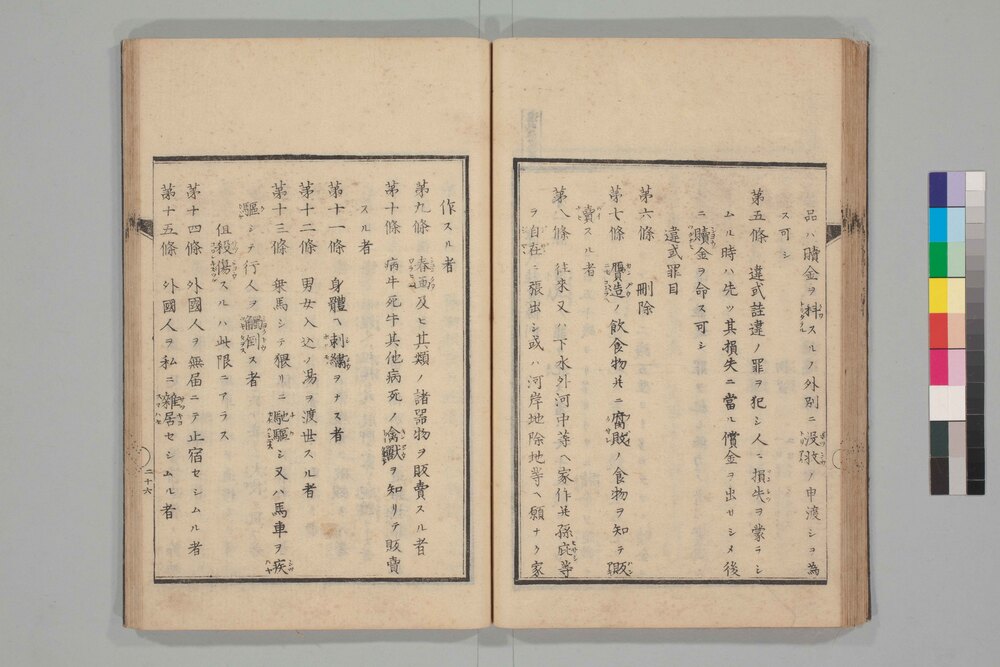 品ハ贖金ヲ科スルノ外別ニ没収ノ申渡シヲ為
ス可シ
第五條 違式詿違ノ罪ヲ犯シ人ニ損失ヲ蒙ラシ
ムル時ハ先ツ其損失ニ當ル償金ヲ出サシメ後
ニ贖金ヲ命ス可シ
第六條 刪除
違式罪目
第七條 贋造ノ飲食物并ニ腐敗ノ食物ヲ知テ販
賣スル者
第八條 往來又ハ下水外河中等ヘ家作并孫庇等
ヲ自在ニ張出シ或ハ河岸地除地等ヘ願ナク家
作スル者
第九條 春画及ヒ其類ノ諸器物ヲ販賣スル者
第十條 病牛死牛其他病死ノ禽獣ヲ知リテ販賣
スル者
第十一條 身體ヘ刺繍ヲナス者
第十二條 男女入込ノ湯ヲ渡世スル者
第十三條 乗馬シテ猥リニ馳驅シ又ハ馬車ヲ疾
驅シテ行人ヲ觸倒ス者
但殺傷スルハ此限ニアラス
第十四條 外國人ヲ無届ニテ止宿セシムル者
第十五條 外國人ヲ私ニ雑居セシムル者
二十六